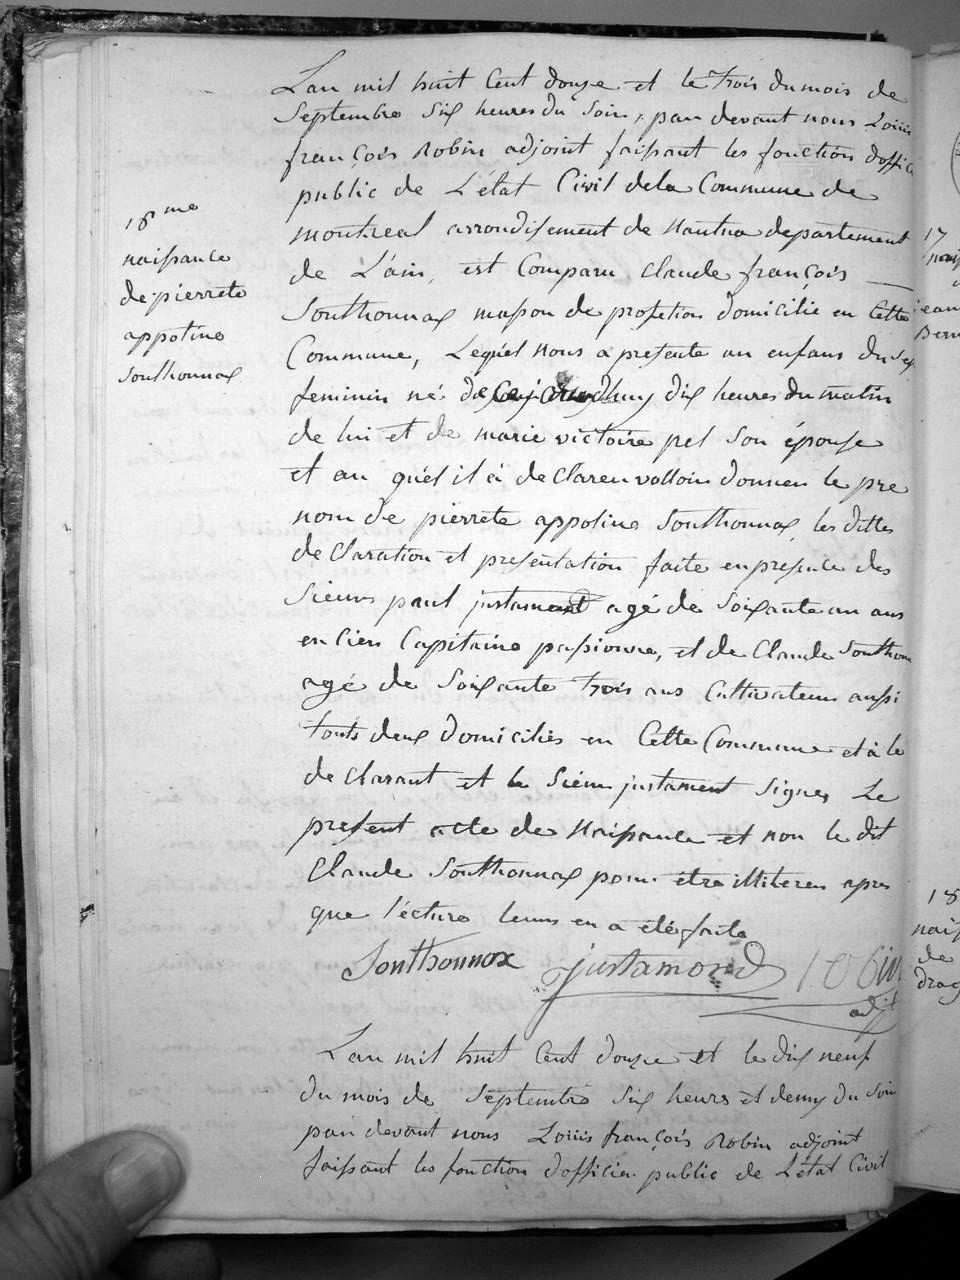 18me
naissance
de pierrete
appoline
Southonnax
L'an mil huit Cent douze et le trois du mois de
Septembre Six heures du Soir, par devant nous Louiis
françois Robin adjoint faissant les fonction d'offici
public de L'état Civil de la Commune de
montreal arrondisement de Nantua departement
de L'ain, est Comparu Claude françois
Southonnax masson de profetion domicilié en Cette
Commune, Lequel nous a presenté un enfans du Sex
feminin né dix heures du matin
de lui et de marie victoire pel Son épouse
et au quel il à declarer volloir donner le pre
nom de pierrete appoline Southonnax, les dittes
declaration et presentation faite en presence des
Sieurs paul justamont agé de Soixante un ans
encien Capitaine, et de Claude Southonn
agé de Soixante trois ans Cultivateur aussi
touts deux domiciliés en Cette Commune et à le
declarant et le Sieur justament Signer Le
present acte de Naissance et non le dit
Claude Southonnax pour être illiterer apres
que l'écture leurs en a été faite
Southonnax justamond Robin
adjt
L'an mil huit Cent douze et le dix neuf
du mois de Septembre Six heures et demy du Soir
par devant nous Louiis françois Robin adjoint
faissant les fonction d'officier public de L'état Civil
17
jean
Bern
18
naiss
de
drag